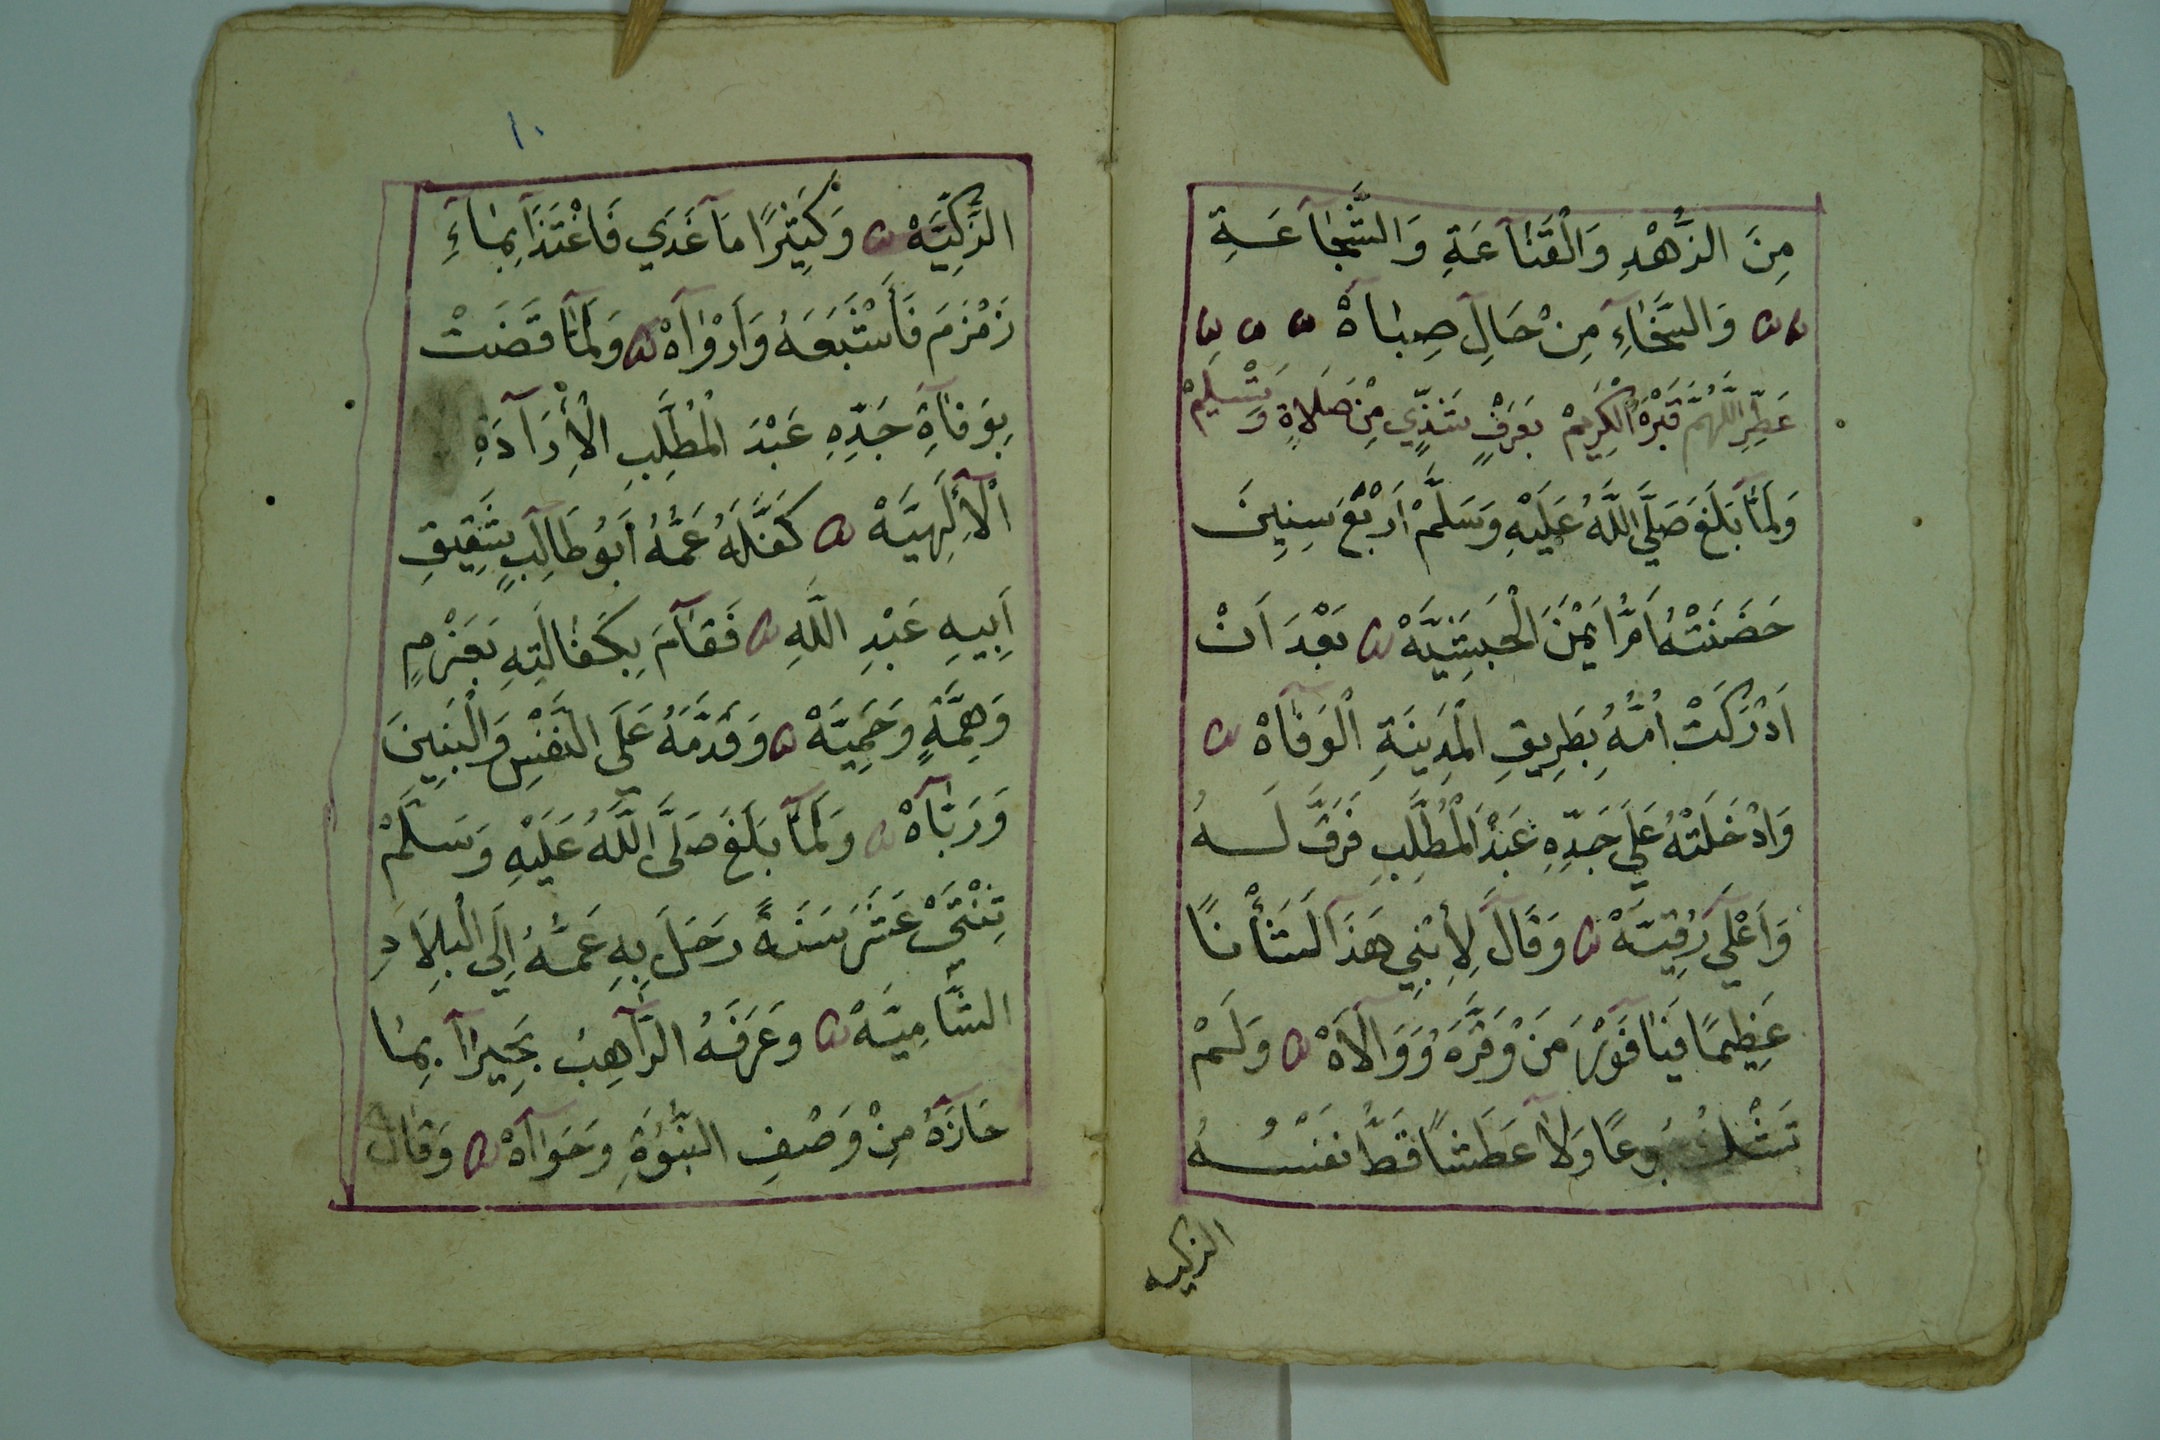 مِنَ الزُّهْدِ وَالْقَنَآعَةِ وَالشَّجَآعَةِ
وَالسَّخَآءِ مِنْ حَالِ صِبَآهْ
عَطِّرِ اللَّهُمَّ قَبْرَهُ الْكَرِيمْ بِعَرْفٍ شَذِّيٍ مِنْ صَلَاةٍ وَتَسْلِيمْ
وَلَمَّا بَلَغَ صَلَّى اللَّهُ عَلَيْهِ وَسَلَّمْ اَرْبَعَ سِنِينَ
حَضَنَتْهُ اُمُّ اَيْمَنَ الْحَبَشِيَّهْ بَعْدَ اَنْ
اَدْرَكَتْ اُمَّهُ بِطَرِيقِ الْمَدِينَةِ الْوَفَآهْ
وَادْخَلَتْهُ عَلَى جَدِّهِ عَبْدَ الْمُطَّلِبِ فَرَقَّ لَهُ
وَاَعْلَى رُقِيَّهْ وَقَالَ لِأِبْنِي هَذَا لَشَأْنًا
عَظِيمًا فَيَا فَوْزَ مَنْ وَقَّرَهُ وَوَالَآهْ وَلَمْ
تَشْكُ جُوعًا وَلَا عَطَشًا قَطُّ نَفْسُهُ
الزكيه
١٠
الزَّكِيَّهْ وَكَثِيرًا مَا غَدَى فَاغْتَذَا بِمَآءِ
زَمْزَمَ فَأَشْبَعَهُ وَاَرْوَآهْ وَلَمَّا قَضَتْ
بِوَفَآةِ جَدِّهِ عَبْدَ الْمُطَّلِبِ الْأِرَآدَةِ
الْأِلَهِيَّهْ كَفَّلَهُ عَمُّهُ اَبُو طَالِبٍ شَقِيقِ
اَبِيهِ عَبْدِ اللَّهِ فَقَآمَ بِكَفَالَتِهِ بِعَزْمٍ
وَهِمَّةٍ وَحَمِيَّهْ وَقَدَّمَهُ عَلَى النَّفْسِ وَالْبَنِينَ
وَرَبَّآهْ وَلَمَّا بَلَغَ صَلَّى اللَّهُ عَلَيْهِ وَسَلَّمْ
تِنْتَيْ عَشَرَ سَنَةً رَحَلَ بِهِ عَمُّهُ اِلَى الْبِلَادِ
الشَّامِيَّهْ وَعَرَفَهُ الرَّآهِبُ بَحِيرَآ بِمَا
حَازَهُ مِنْ وَصْفِ النُّبُوَّةِ وَحَوَآهْ وَقَالَ